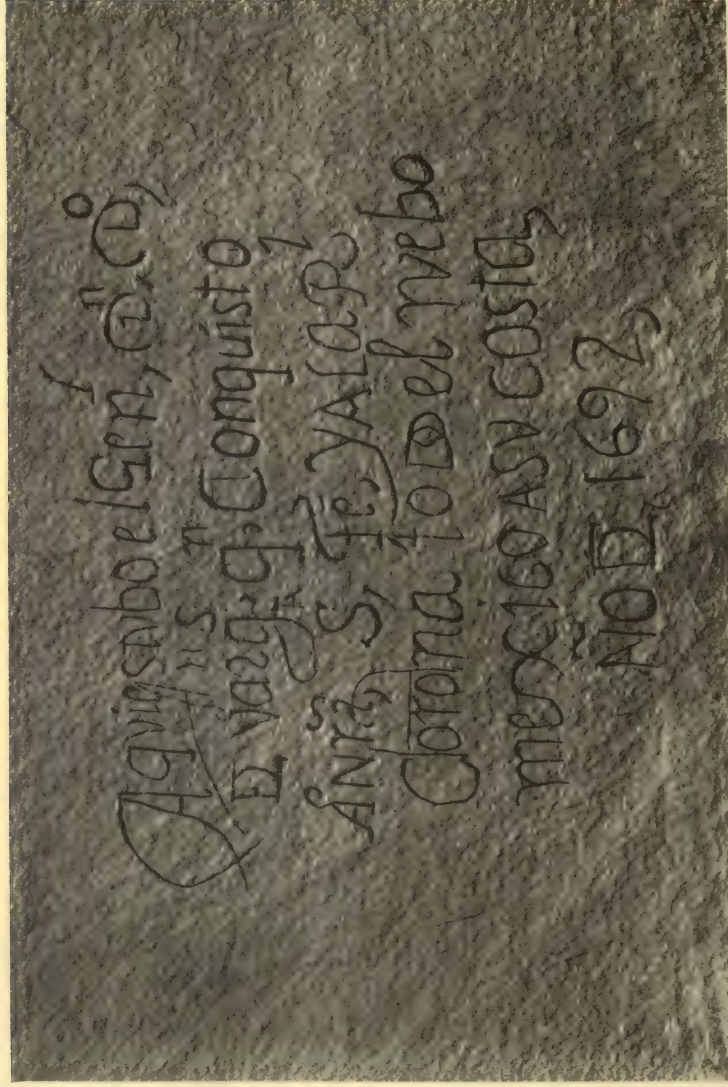 Aqui estubo el Genl. Dn. Do.
DE Vargs. qn. Conquisto
Â Nrã, S, Fe, Y A La Rl.
Corona todo el nuebo
mexico A SV COSTA,
AÑO DE 1692,